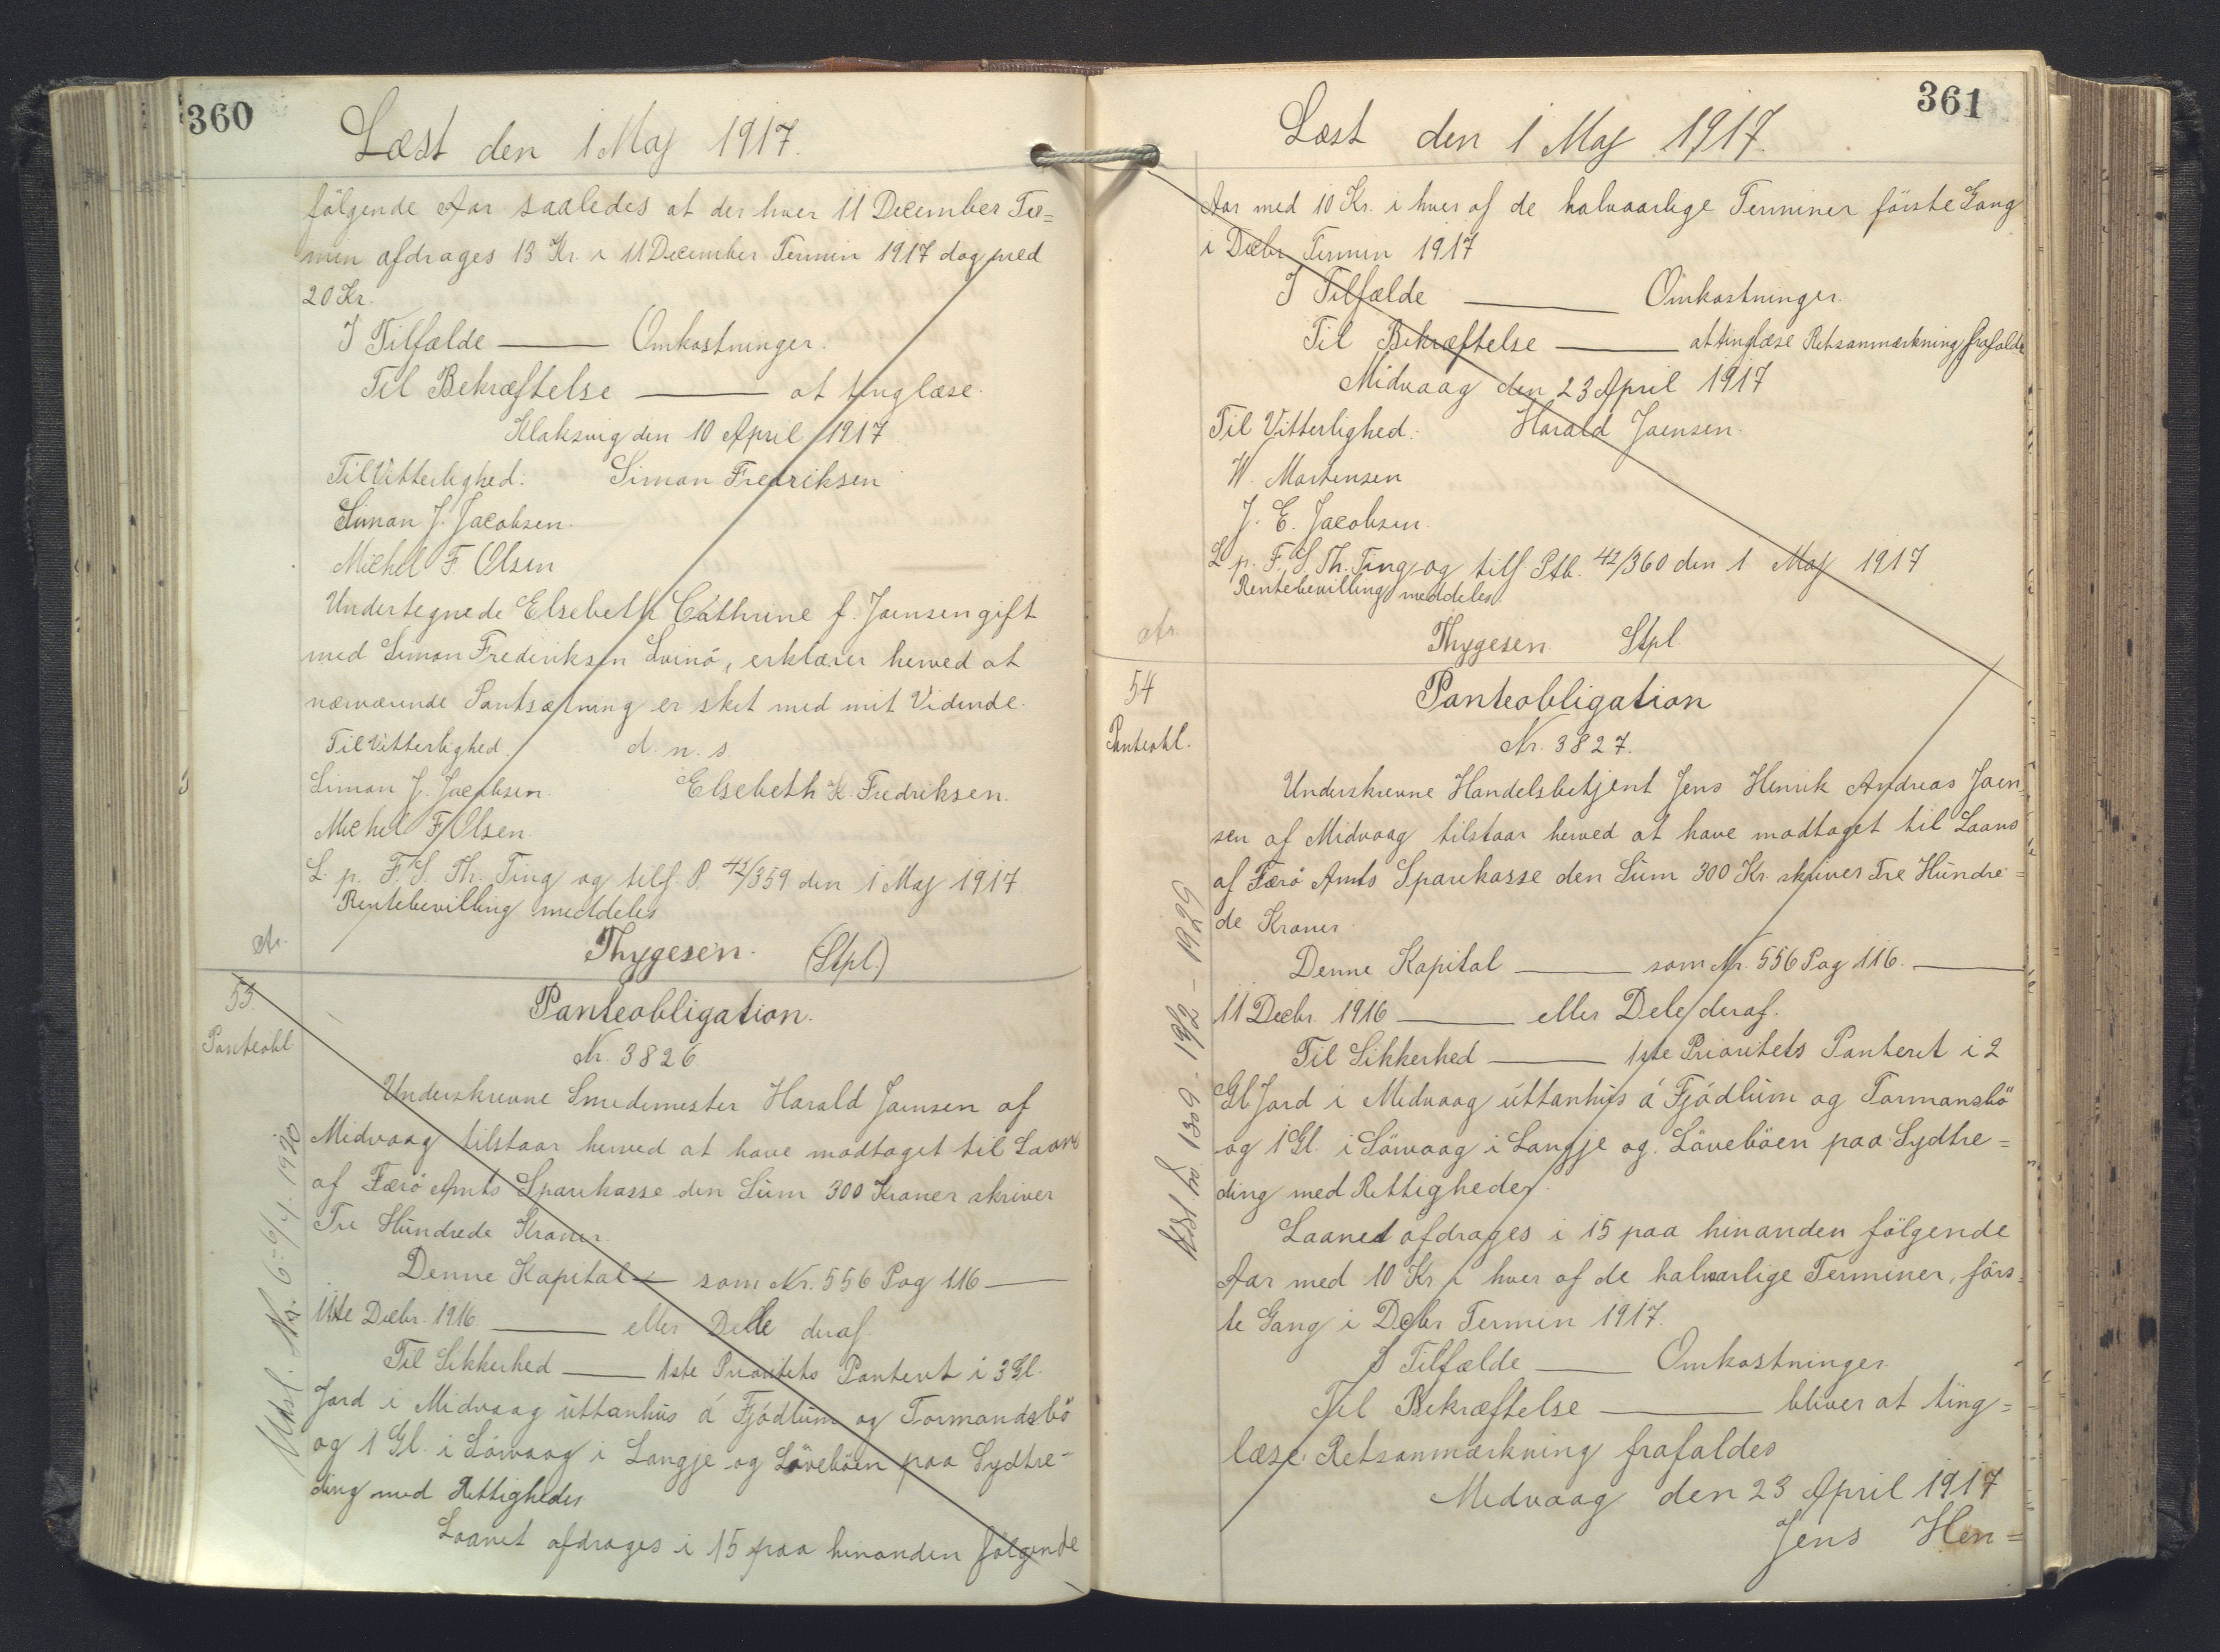 360
Læst den 1 Maj 1917.
følgende Aar saaledes at der hver 11 December Ter=
min afdrages 13 Kr. i 11 December Termin 1917 dog med
20 Kr.
I Tilfælde ——— Omkostninger.
Til Bekræftelse ——— at tinglæse.
Klaksvig den 10 April 1917
Til Vitterlighed: Simon Fredriksen
Simon J. Jacobsen.
Michel F. Olsen
Undertegnede Elsebeth Cathrine f. Joensen gift
med Simon Frederiksen Svinö, erklærer herved at
nærværende Pantsætning er sket med mit Vidende.
Til Vitterlighed. d. n. s.
Simon J. Jacobsen. Elsebeth K. Fredriksen.
Michel F. Olsen.
L. p. F. S. Th. Ting og tilf. P. 42/359 den 1 Maj 1917
Rentebevilling meddeles
Thygesen. (Stpl.)
53.
Panteobl
Panteobligation.
Nr. 3826
Underskrevne Smedemester Harald Joensen af
Midvaag tilstaar herved at have modtaget til Laans
af Færö Amts Sparekasse den Sum 300 Kroner skriver
Tre Hundrede Kroner.
Denne Kapital — som Nr. 556 Pag 116 —
11te Decbr. 1916 ——— eller Dele deraf.
Til Sikkerhed ——— 1ste Prioritets Panteret i 3 Gl.
Jord i Midvaag úttanhús á Fjódlum og Tormandsbö
og 1 Gl. i Sörvaag i Langje og Löveböen paa Sydtre=
ding med Rettigheder
Laanet afdrages i 15 paa hinanden følgende
Udsl. Nr. 6 - 6/4. 1930
361
Læst den 1 Maj 1917.
Aar med 10 Kr. i hver af de halvaarlige Terminer første Gang
i Decbr Termin 1917
I Tilfælde ——— Omkostninger.
Til Bekræftelse ——— at tinglæse Retsanmærkning frafaldes
Midvaag den 23 April 1917
Til Vitterlighed: Harald Joensen.
W. Mortensen
J. E. Jacobsen.
L. p. F. S. Th. Ting og tilf. Ptb. 42/360 den 1 Maj 1917
Rentebevilling meddeles.
Thygesen. Stpl
54
Panteobl.
Panteobligation
Nr. 3827.
Underskrevne Handelsbetjent Jens Henrik Andreas Joen=
sen af Midvaag tilstaar herved at have modtaget til Laans
af Færö Amts Sparekasse den Sum 300 Kr. skriver Tre Hundre=
de Kroner.
Denne Kapital ——— som Nr. 556 Pag 116. ———
11 Decbr. 1916 ——— eller Dele deraf.
Til Sikkerhed ——— 1ste Prioritets Panteret i 2
Gl Jord i Midvaag úttanhús á Fjódlum og Tormansbö
og 1 Gl. i Sörvaag i Langje og Löveböen paa Sydtre=
ding med Rettigheder.
Laanet afdrages i 15 paa hinanden følgende
Aar med 10 Kr i hver af de halvarlige Terminer, förs=
te Gang i Decbr Termin 1917.
I Tilfælde ——— Omkostninger.
Til Bekræftelse ——— bliver at ting=
læse. Retsanmærkning frafaldes
Midvaag den 23 April 1917
Jens Hen=
Udsl. Nr. 1309 - 19/2 - 1929